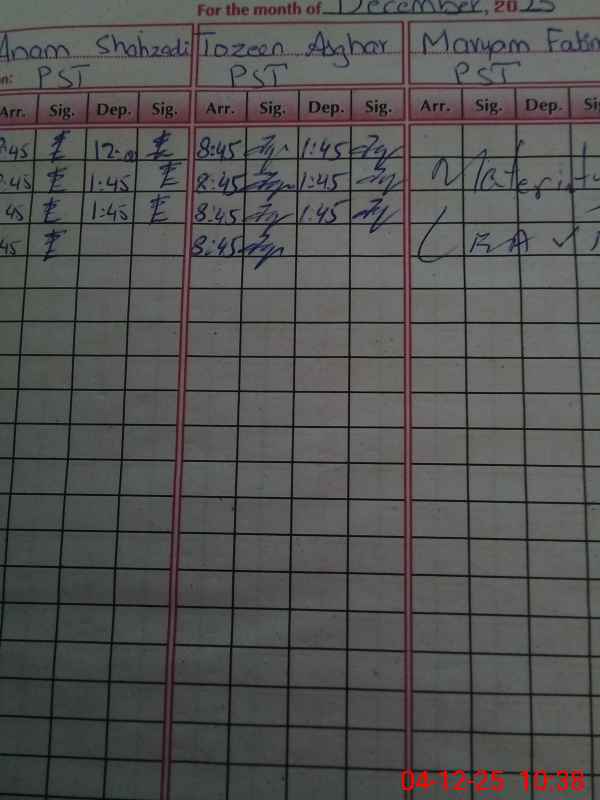 For the month of December, 2025
Anam Shahzadi Tozeen Asghar Maryam
PST PST PST
Arr. Sig. Dep. Sig. Arr. Sig. Dep. Sig. Arr. Sig. Dep.
:45 8:45 1:45
:45 1:45 8:45 1:45
45 1:45 8:45 1:45
45 8:45
04-12-25 10:38